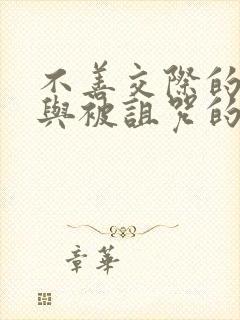 不善交際的
與被詛咒的
章華